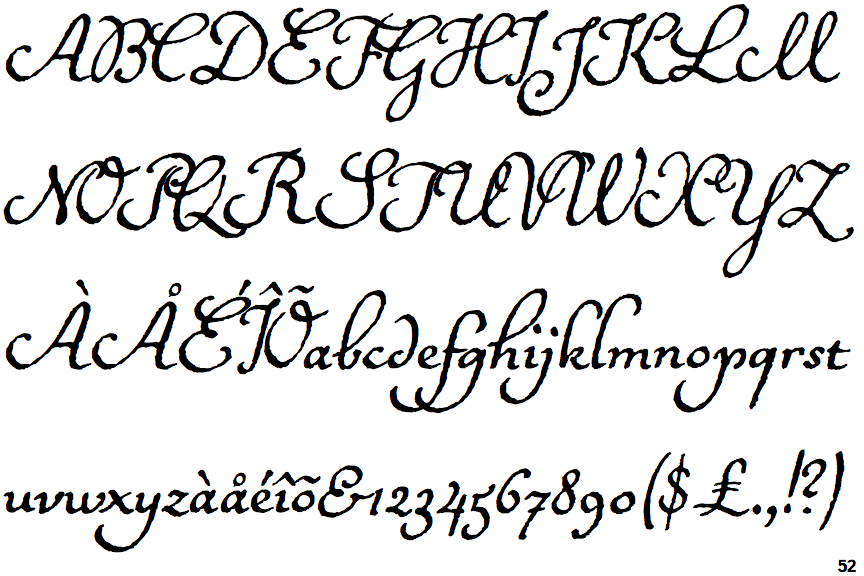 ABCDEFGHIJKLM
NOPQRSTUVWXYZ
ÀÅÉÎÕabcdefghijklmnopqrst
uvwxyzàåéîõ&1234567890($£.,!?)
52